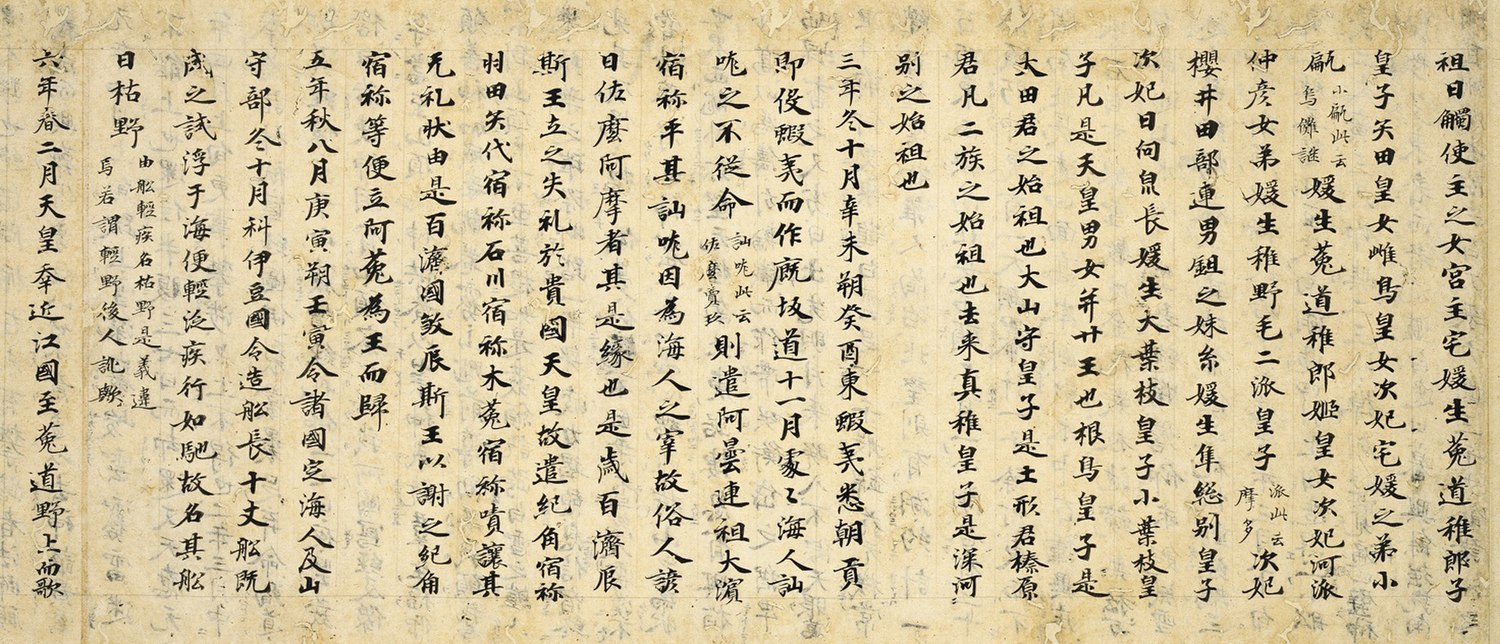 祖日觸使主之女宮主宅媛生菟道稚郎子
皇子矢田皇女雌鳥皇女次妃宅媛之弟小
甂 小甂此云烏儺謎 媛生菟道稚郎姬皇女次妃河派
仲彦女弟媛生稚野毛二派皇子 派此云摩多 次妃
櫻井田部連男鉏之妹糸媛生隼総別皇子
次妃日向泉長媛生大葉枝皇子小葉枝皇
子凡是天皇男女并廿王也根鳥皇子是
大田君之始祖也大山守皇子是土形君榛原
君凡二族之始祖也去来真稚皇子是深河
別之始祖也
三年冬十月辛未朔癸酉東蝦夷悉朝貢
即役蝦夷而作厩坂道十一月處〻海人訕
哤之不從命 訕哤此云佐麼賣玖 則遣阿曇連祖大濱
宿祢平其訕哤因為海人之宰故俗人諺
曰佐麼阿摩者其是緣也是歳百濟辰
斯王立之失礼於貴國天皇故遣紀角宿祢
羽田矢代宿祢石川宿祢木菟宿祢嘖讓其
无礼狀由是百濟國敓辰斯王以謝之紀角
宿祢等便立阿菟為王而歸
五年秋八月庚寅朔壬寅令諸國定海人及山
守部冬十月科伊豆國令造舩長十丈舩既
成之試浮于海便輕泛疾行如馳故名其舩
曰枯野 由舩輕疾名枯野是義違焉若謂輕野後人訛歟
六年春二月天皇幸近江國至菟道野上而歌